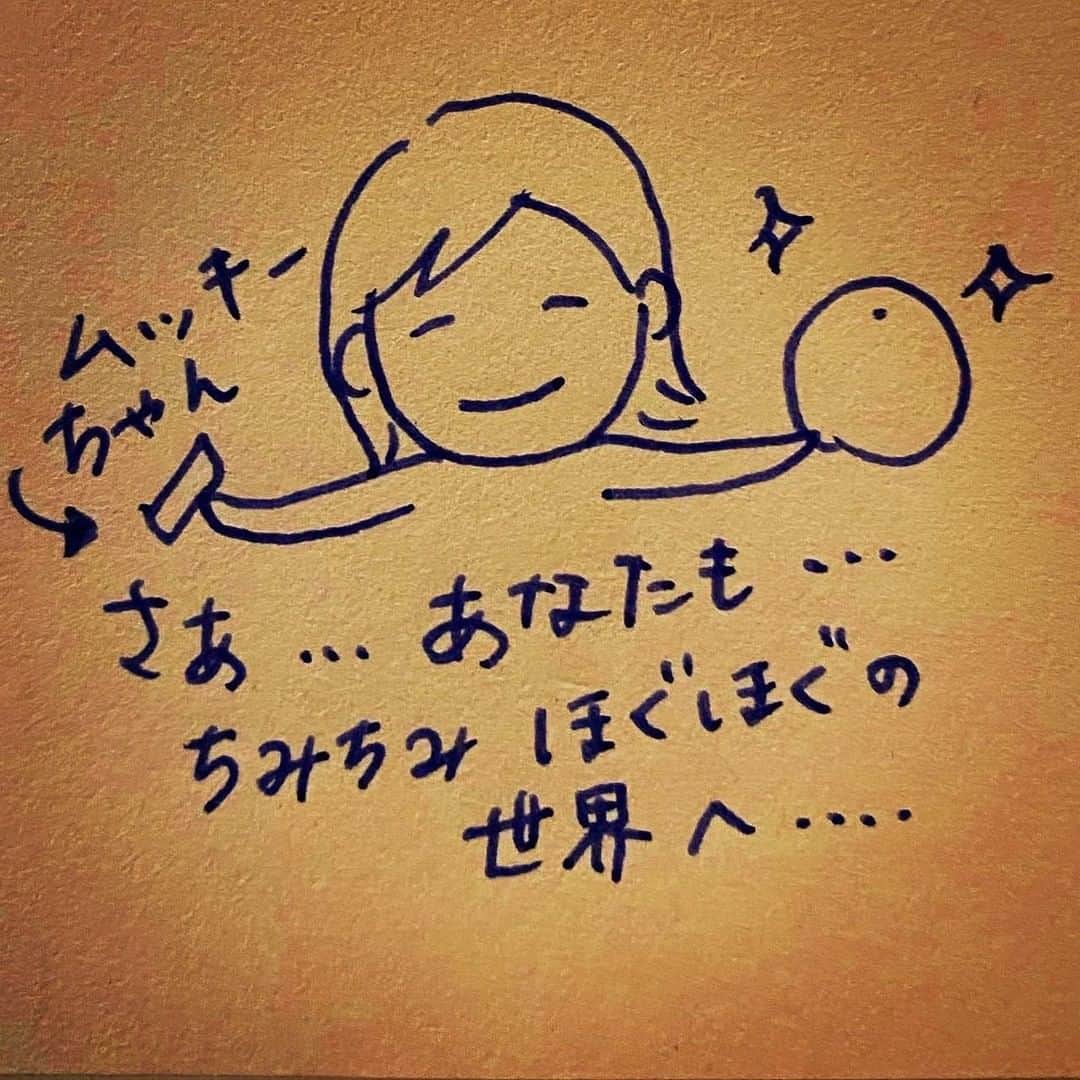 ムッキー
ちゃん
さあ…あなたも…
ちみちみ ほぐほぐの
世界へ‥‥